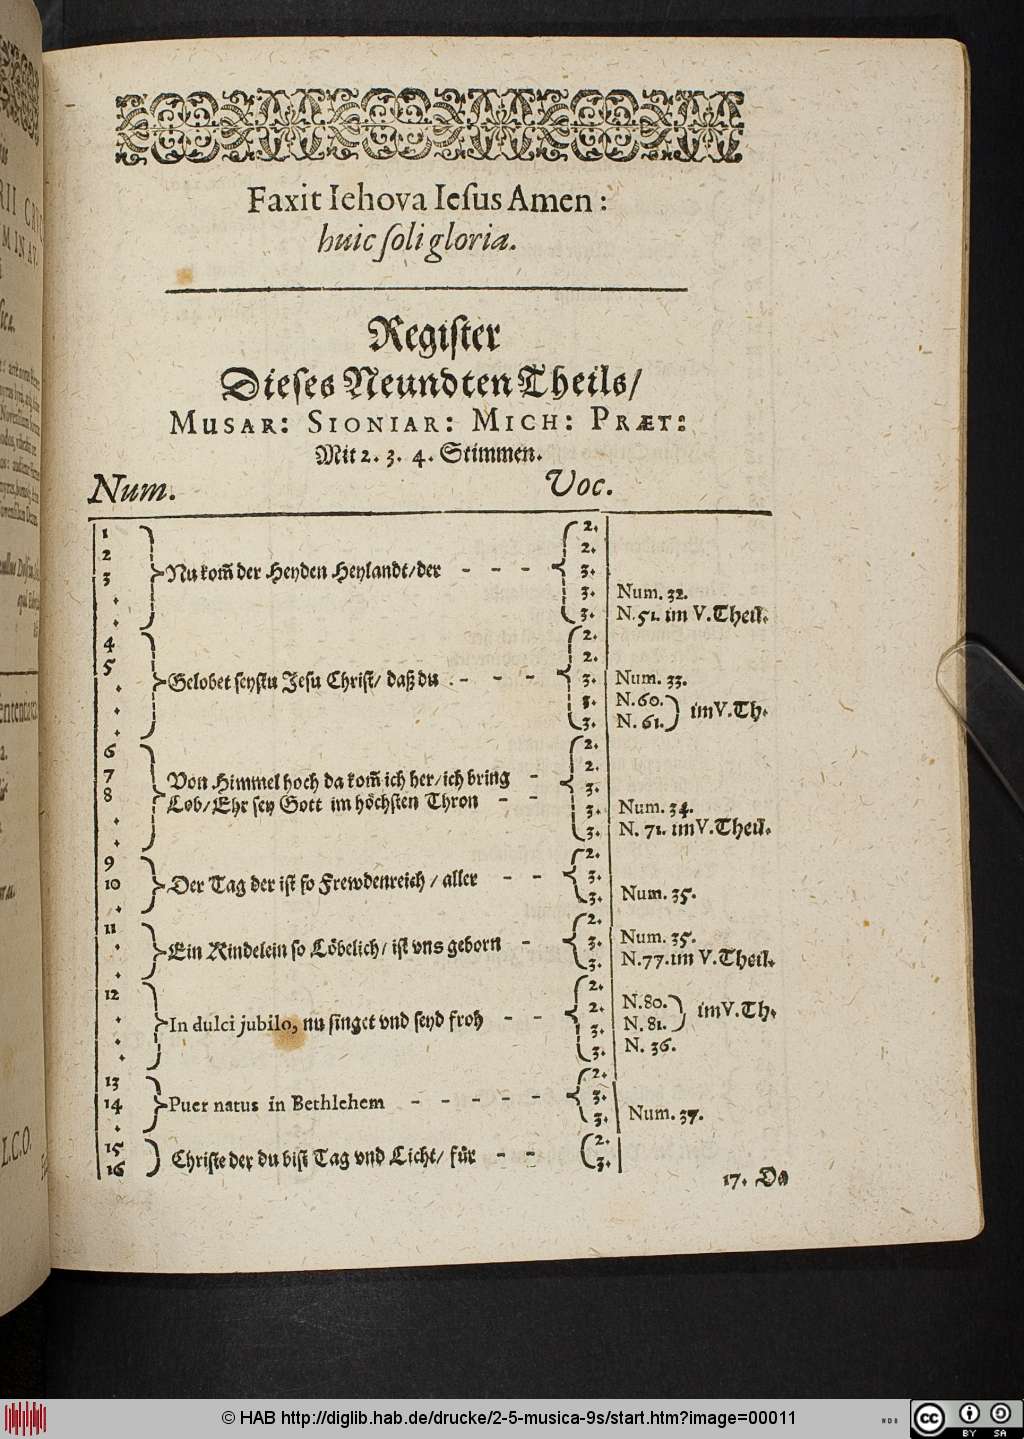 Faxit Iehova Iesus Amen:
huic soli gloria.
Register
Dieses Neundten Theils/
MUSAR: SIONIAR: MICH: PRÆT:
Mit 2. 3. 4. Stimmen.
Num. Voc.
1 2.
2 2.
3 Nu kom̃ der Heyden Heylandt/der - - - 3.
. 3. Num. 32.
. 3. N. 51. im V. Theil.
4 2.
5 2.
. Gelobet seystu Jesu Christ/ daß du . - - - 3. Num. 33.
. 3. N. 60.
. 3. N. 61. im V. Th.
6 2.
7 Von Himmel hoch da kom̃ ich her/ich bring - 2.
8 Lob/Ehr sey Gott im höchsten Thron - - 3.
. 3. Num. 34.
. 3. N. 71. im V. Theil.
9 2.
10 Der Tag der ist so Frewdenreich / aller - - 3.
. 3. Num. 35.
11 2.
. Ein Kindelein so Löbelich/ ist vns geborn - 3. Num. 35.
. 3. N. 77. im V. Theil.
12 2.
. 2. N. 80.
. In dulci jubilo, nu singet vnd seyd froh - - 3. N. 81. im V. Th.
. 3. N. 36.
13 2.
14 Puer natus in Bethlehem - - - - - 3.
. 3. Num. 37.
15 2.
16 Christe der du bist Tag vnd Licht/ für - - 3.
17. Da
RII
L.C.O.
© HAB http://diglib.hab.de/drucke/2-5-musica-9s/start.htm?image=00011
cc BY SA